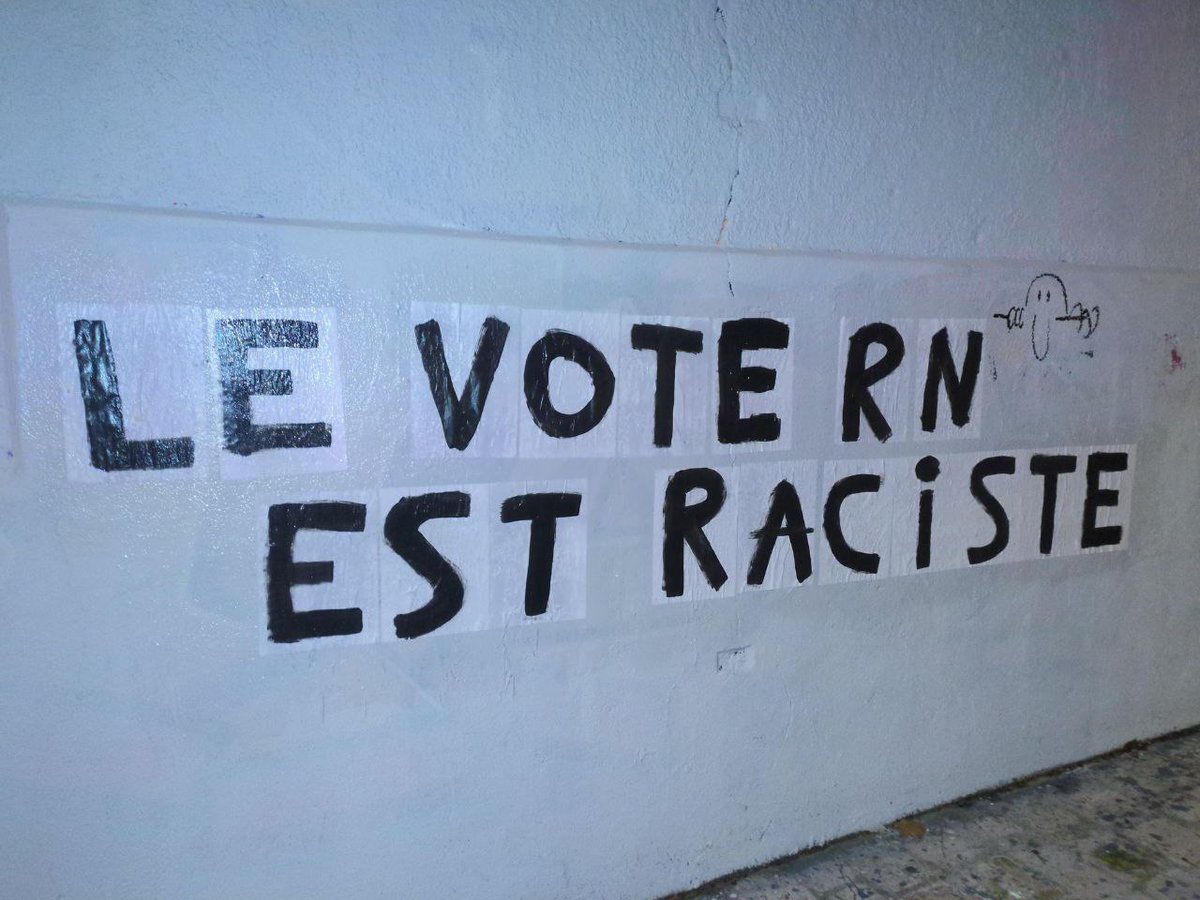 LE VOTE RN
EST RACiSTE